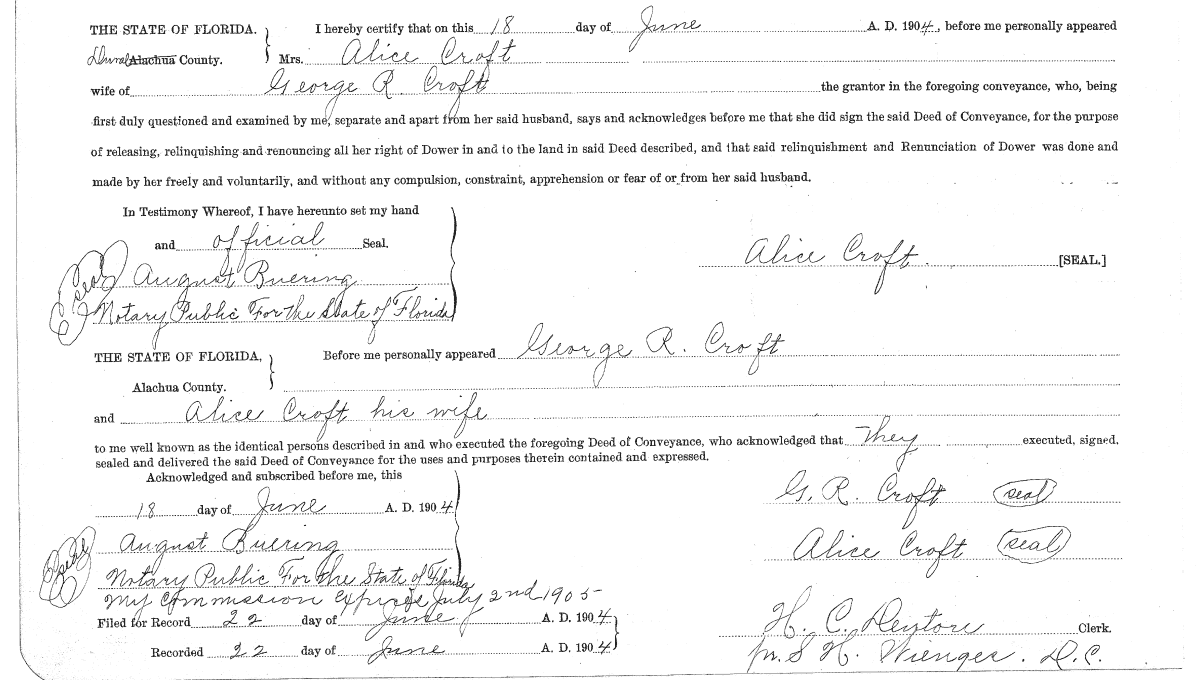 THE STATE OF FLORIDA. I hereby certify that on this 18 day of June A. D. 1904, before me personally appeared
Duval Alachua County. Mrs. Alice Croft
wife of George R. Croft the grantor in the foregoing conveyance, who, being
first duly questioned and examined by me, separate and apart from her said husband, says and acknowledges before me that she did sign the said Deed of Conveyance, for the purpose
of releasing, relinquishing and renouncing all her right of Dower in and to the land in said Deed described, and that said relinquishment and Renunciation of Dower was done and
made by her freely and voluntarily, and without any compulsion, constraint, apprehension or fear of or from her said husband.
In Testimony Whereof, I have hereunto set my hand
and official Seal.
Alice Croft [SEAL.]
seal August Buering
Notary Public For the State of Florida
THE STATE OF FLORIDA, Before me personally appeared George R. Croft
Alachua County.
and Alice Croft his wife
to me well known as the identical persons described in and who executed the foregoing Deed of Conveyance, who acknowledged that They executed, signed,
sealed and delivered the said Deed of Conveyance for the uses and purposes therein contained and expressed.
Acknowledged and subscribed before me, this
18 day of June A. D. 1904
G. R. Croft seal
seal August Buering
Alice Croft seal
Notary Public For the State of Florida
My Commission Expires July 2nd 1905
Filed for Record 22 day of June A. D. 1904
H. C. Clerk.
Recorded 22 day of June A. D. 1904
pr. S H. Wienges. D. C.